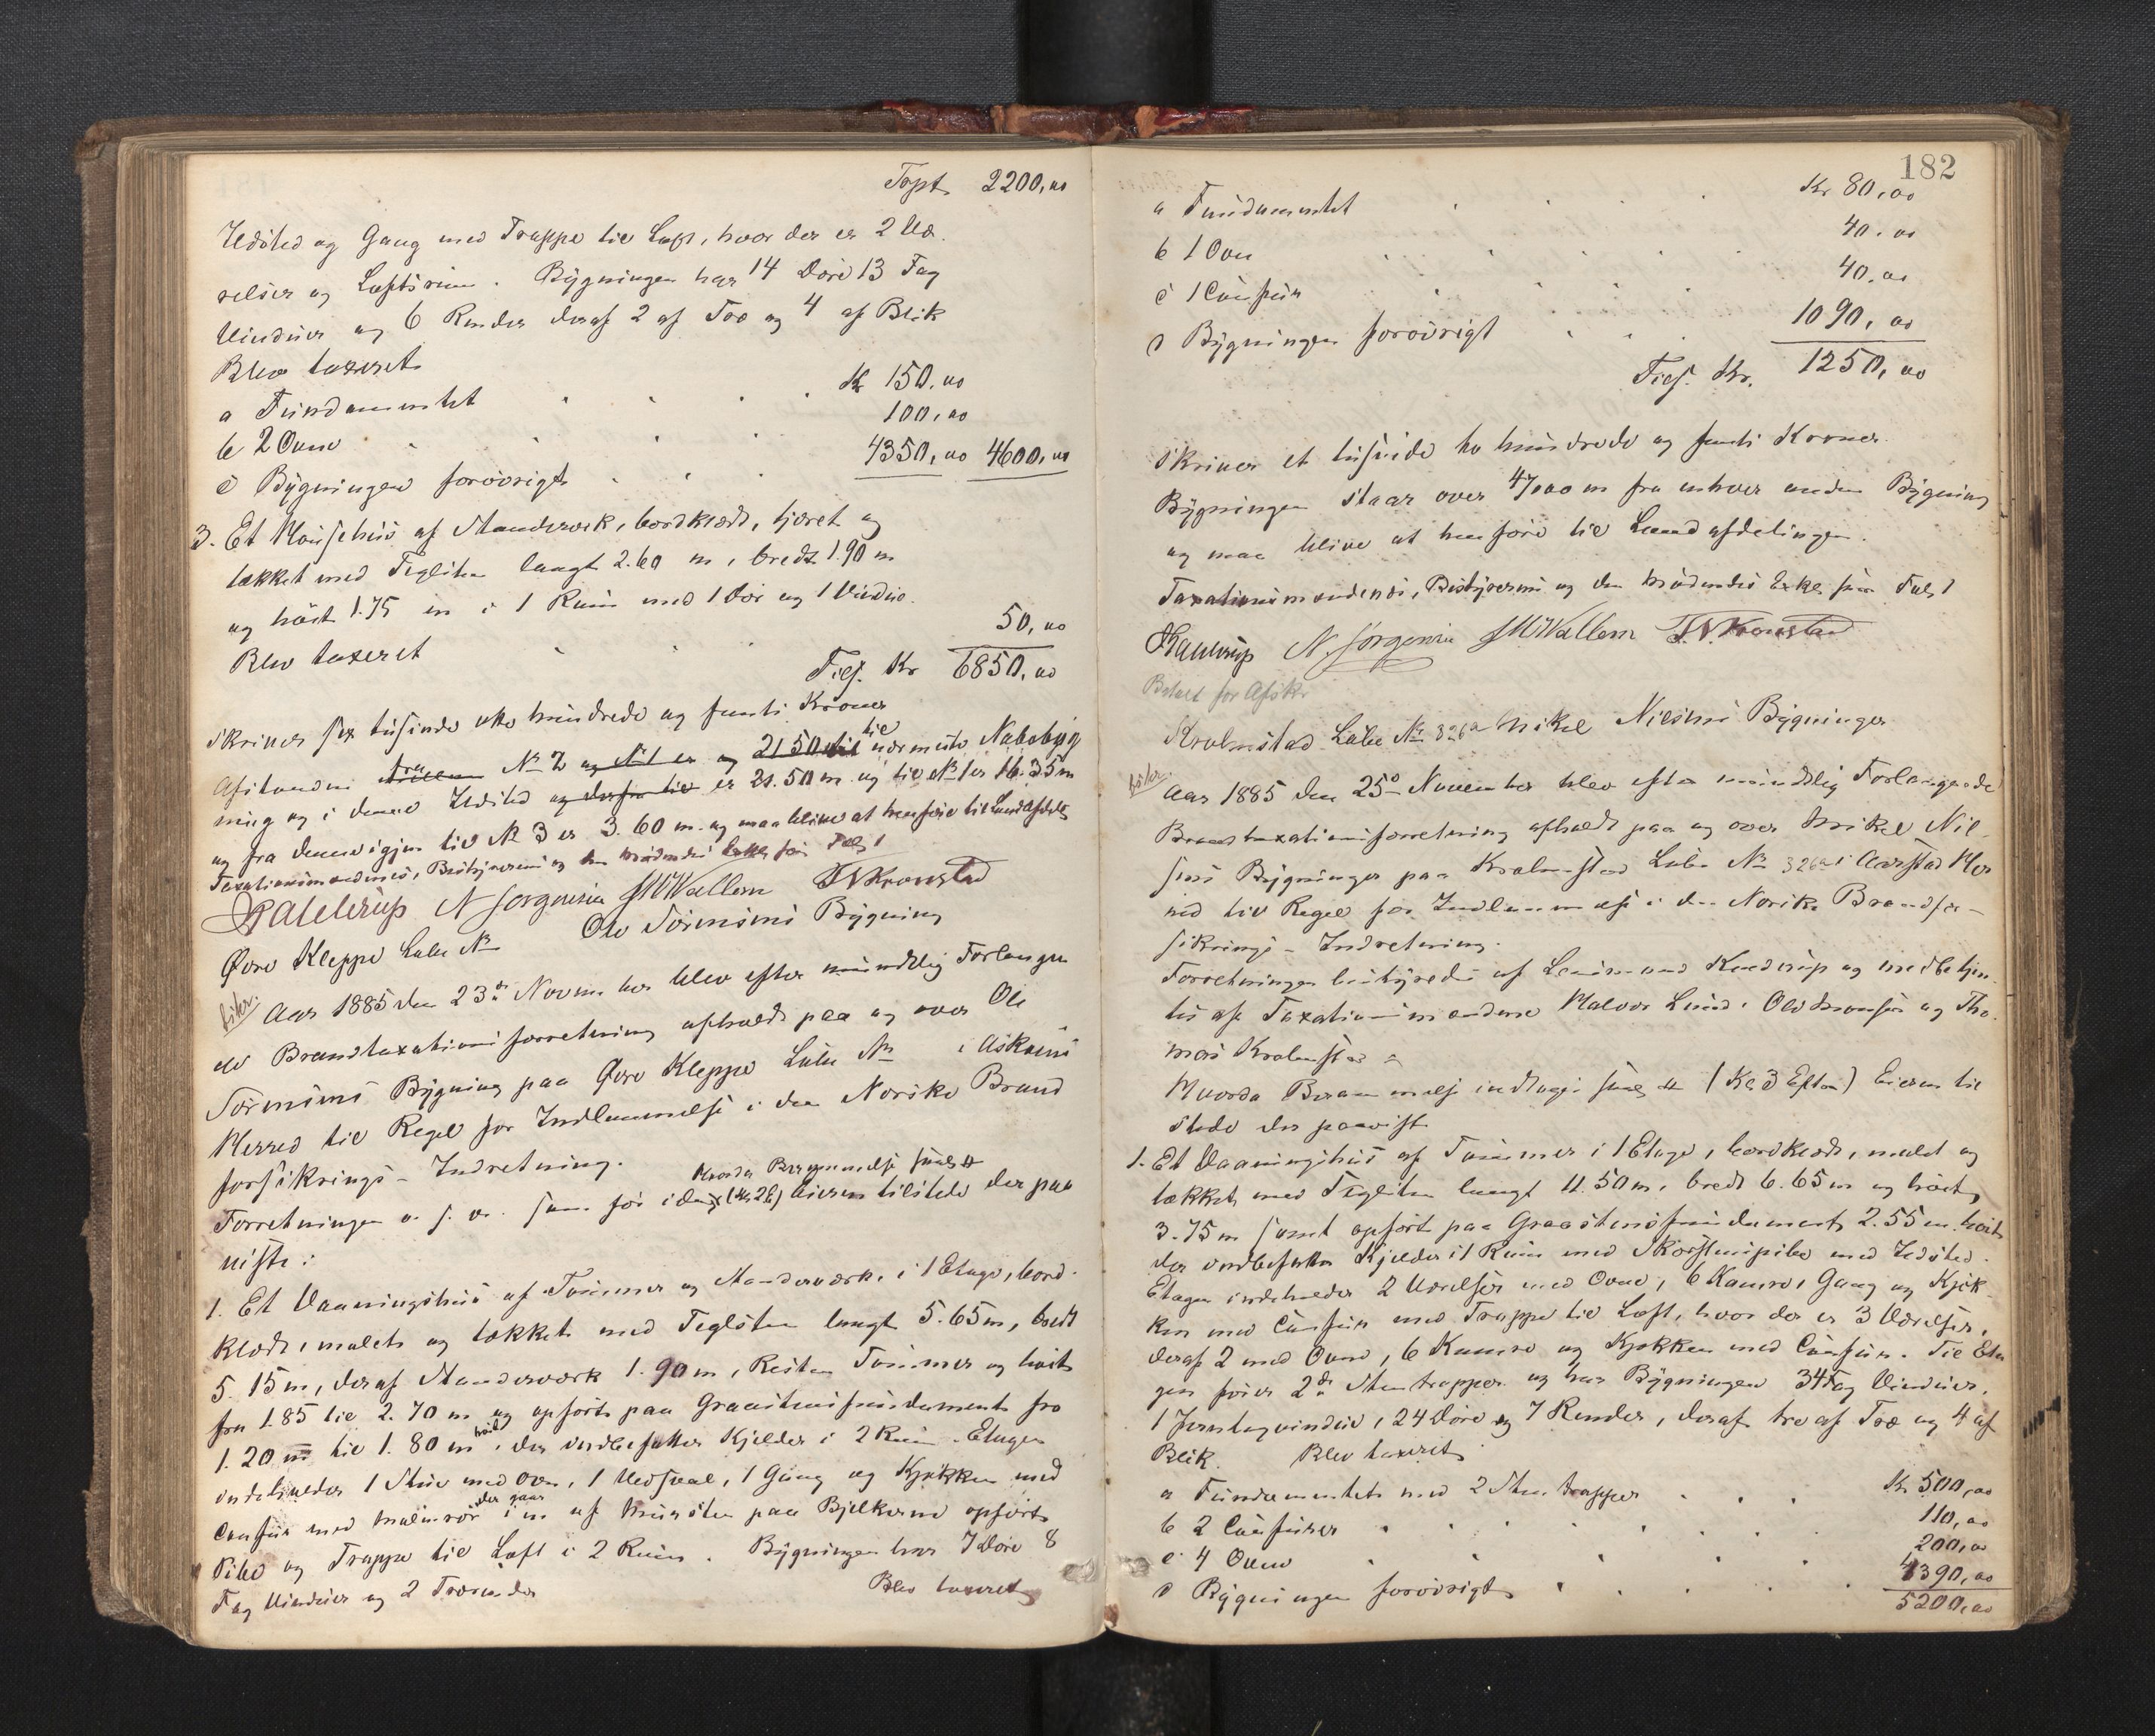 Tspt. 2200,00
Ildsted og Gang med Trappe til Loft, hvor der er 2 Væ-
relser og Loftsrum. Bygningen har 14 Døre 13 Fag
Vinduer og 6 Render deraf 2 af Træ og 4 af Blik
Blev taxeret
a Fundamentet Kr 150,00
b 2 Ovne 100,00
c Bygningen forøvrigt 4350,00 4600,00
3. Et huus af Standværk, bordklædt, tjæret og
tækket med Teglsten langt 2.60 m, bredt 1.90 m
og høit 1.75 m i 1 Rum med 1 Dør og 1 Vindue.
Blev taxeret 50,00
Tils. Kr 6850,00
Skriver sex tusinde otte hundrede og femti Kroner
Afstanden fra No 2 og No 1 er og 21 50 til til nærmeste Nabobyg
ning og i denne Ildsted er 21.50 m og til No 1 er 16.35 m
og fra denne igjen til No 3 er 3.60 m. og maa blive at henføre til Landafdel
Taxationsmændenes, Bestyrerens og
N Jørgensen Wallem Kronstad
Øvre Kleppe Løbe No Ole Sørensens Bygning
Aar 1885 den 23de November blev efter mundtlig Forlangen
de Brandtaxationsforretning afholdt paa og over Ole
Sørensens Bygning paa Øvre Kleppe Løbe No i Askøens
Herred til Regel for Indlemmelse i den Norske Brand
forsikrings-Indretning.
Hvorda Berammelse
Forretningen o. s. v. som før Eieren tilstede der paa
viste:
1. Et Vaaningshus af Tømmer og Standværk i 1 Etage, bord-
klædt, malet og tækket med Teglsten langt 5.65 m, bredt
5.15 m, deraf Standværk 1.90 m, Resten Tømmer og høit
fra 1.85 til 2.70 m og opført paa Graastensfundament fra
1.20 m til 1.80 m høit, der indbefatter Kjelder i 2 Rum. Etagen
indeholder 1 Stue med Ovn, 1 Vedsval, 1 Gang og Kjøkken med
Comfur med der gaar af Mursten paa Bjelkerne opført
Pibe og Trappe til Loft i 2 Rum. Bygningen har 7 Døre 8
Fag Vinduer og 2 Trærender Blev taxeret
182
a Fundamentet Kr 80,00
b 1 Ovn 40,00
c 1 Comfur 40,00
d Bygningen forøvrigt 1090,00
Tils. Kr. 1250,00
Skriver et tusinde to hundrede og femti Kroner.
Bygningen staar over m fra enhver anden Bygning
og maa blive at henføre til Landafdelingen.
Taxationsmændenes, Bestyrerens og
N. Jørgensen Wallem Kronstad
Betalt for Afskr
Kronstad Løbe No 326a Mikal Nilsens Bygninger
Aar 1885 den 25de November blev efter mundtlig Forlangende
Brandtaxationsforretning afholdt paa og over Mikal Nil-
sens Bygninger paa Kronstad Løbe No 326a i Aarstad Her
red til Regel for Indlemmelse i den Norske Brandfor-
sikrings-Indretning.
Forretningen bestyredes af Lensmand og medbetjen-
tes af Taxationsmændene Halvor Lund, Ole Monsen og Tho-
mas Kronstad
Hvorda Berammelse indtages (Kl 3 Efter) Eieren til
stede der paaviste
1. Et Vaaningshus af Tømmer i 1 Etage, bordklædt, malet og
tækket med Teglsten langt 11.50 m, bredt 6.65 m og høit
3.75 m samt opført paa Graastensfundament 2.55 m høit
der indbefatter Kjelder i 1 Rum med Skorstenspibe med Ildsted.
Etagen indeholder 2 Værelser med Ovne, 6 Kamre, Gang og Kjøk-
ken med Comfur med Trappe til Loft, hvor der er 3 Værelser,
deraf 2 med Ovne, 6 Kamre og Kjøkken med Comfur. Til Eta
gen fører 2de Stentrapper og har Bygningen 34 Fag Vinduer,
1 Jerntagvindue, 24 Døre og 7 Render, deraf tre af Træ og 4 af
Blik. Blev taxeret
a Fundamentet med 2 Stentrapper Kr 500,00
b 2 Comfurer 110,00
c 4 Ovne 200,00
d Bygningen forøvrigt 4390,00
5200,00